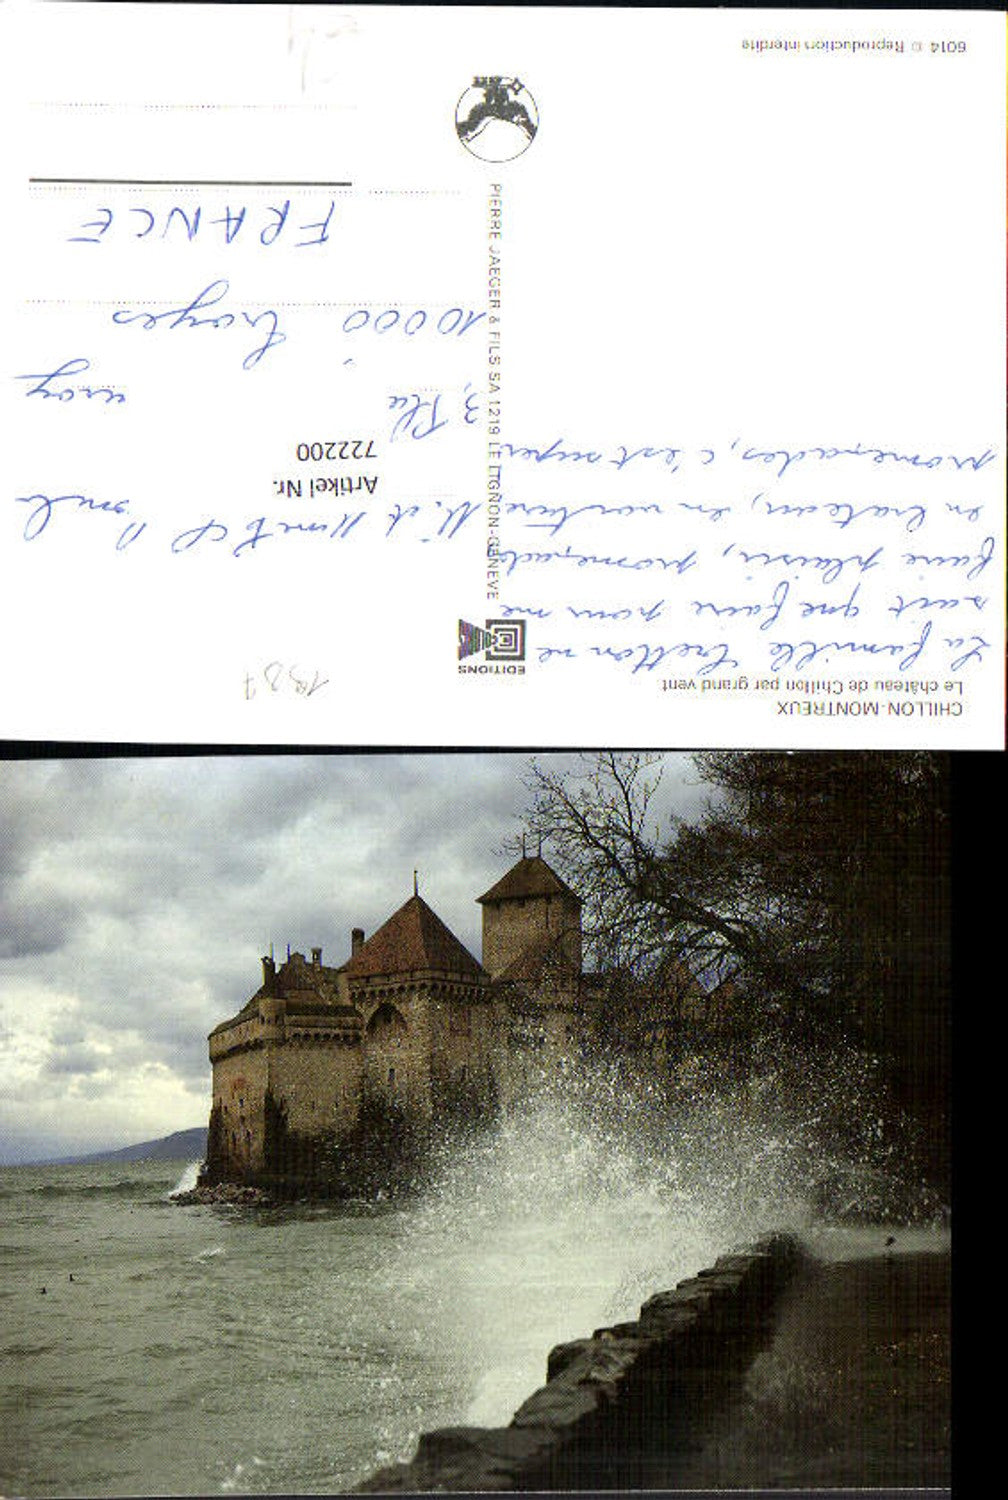 CHILLON-MONTREUX
Le château de Chillon par grand vent
La famille Bretton ne
sait que faire pour me
faire plaisir, promenade
en bateau, en voiture
promenades, c'est super.
EDITIONS
PIERRE JAEGER & FILS SA 1219 LE LIGNON-GENEVE
6014 © Reproduction interdite
1987
M. et
Artikel Nr.
722200
3, Rue
10000 Troyes
FRANCE